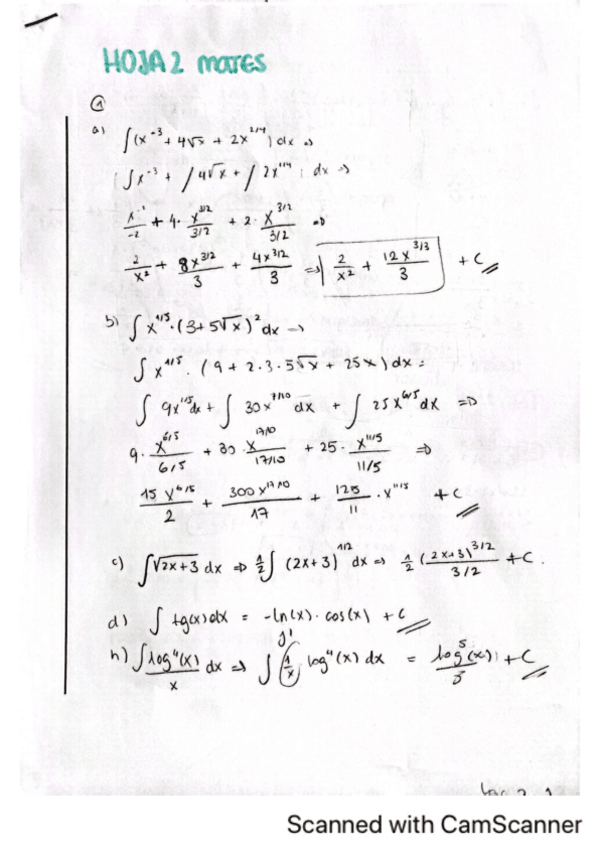 HOJA 2 MATES
①
a) ∫(x⁻³ + 4√x + 2x^2/4) dx ⇒
∫x⁻³ + ∫4√x + ∫2x^1/4 dx ⇒
x⁻¹/-2 + 4· x^3/2/3/2 + 2· x^3/2/3/2 ⇒
2/x² + 8x^3/2/3 + 4x^3/2/3 ⇒ 2/x² + 12x^3/3/3 + C
b) ∫x^1/5·(3+5√x)² dx ⇒
∫x^1/5· (9 + 2·3·5√x + 25x) dx =
∫9x^1/5 dx + ∫30x^7/10 dx + ∫25x^6/5 dx ⇒
9· x^6/5/6/5 + 30· x^17/10/17/10 + 25· x^11/5/11/5 ⇒
15x^6/5/2 + 300x^17/10/17 + 125/11 ·x^11/5 + C
c) ∫√2x+3 dx ⇒ 1/2∫(2x+3)^1/2 dx ⇒ 1/2 (2x+3)^3/2/3/2 + C.
d) ∫tg(x)dx = -ln(x)·cos(x) + C
h) ∫log⁴(x)/x dx ⇒ ∫(1/x) log⁴(x) dx = log⁵(x)/5 + C
Scanned with CamScanner